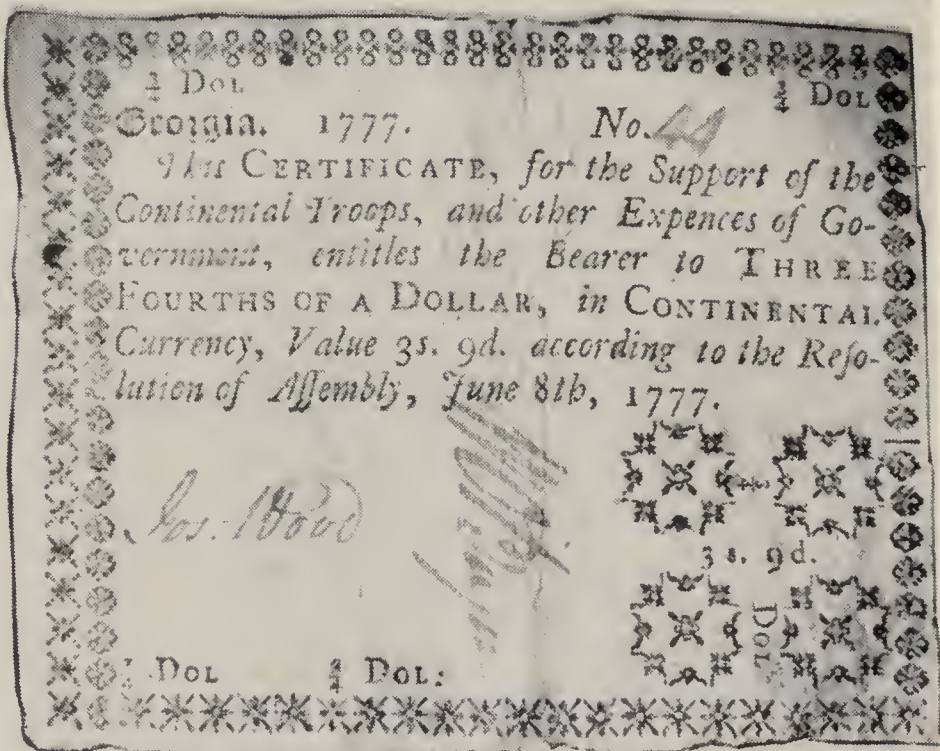 ¾ DOL ¾ DOL
Georgia. 1777. No. 44
This CERTIFICATE, for the Support of the
Continental Troops, and other Expences of Go-
vernment, entitles the Bearer to THREE
FOURTHS OF A DOLLAR, in CONTINENTAL
Currency, Value 3s. 9d. according to the Reſo-
lution of Aſſembly, June 8th, 1777.
Jos. Wood
3 s. 9d.
DOL
DOL ¾ DOL: